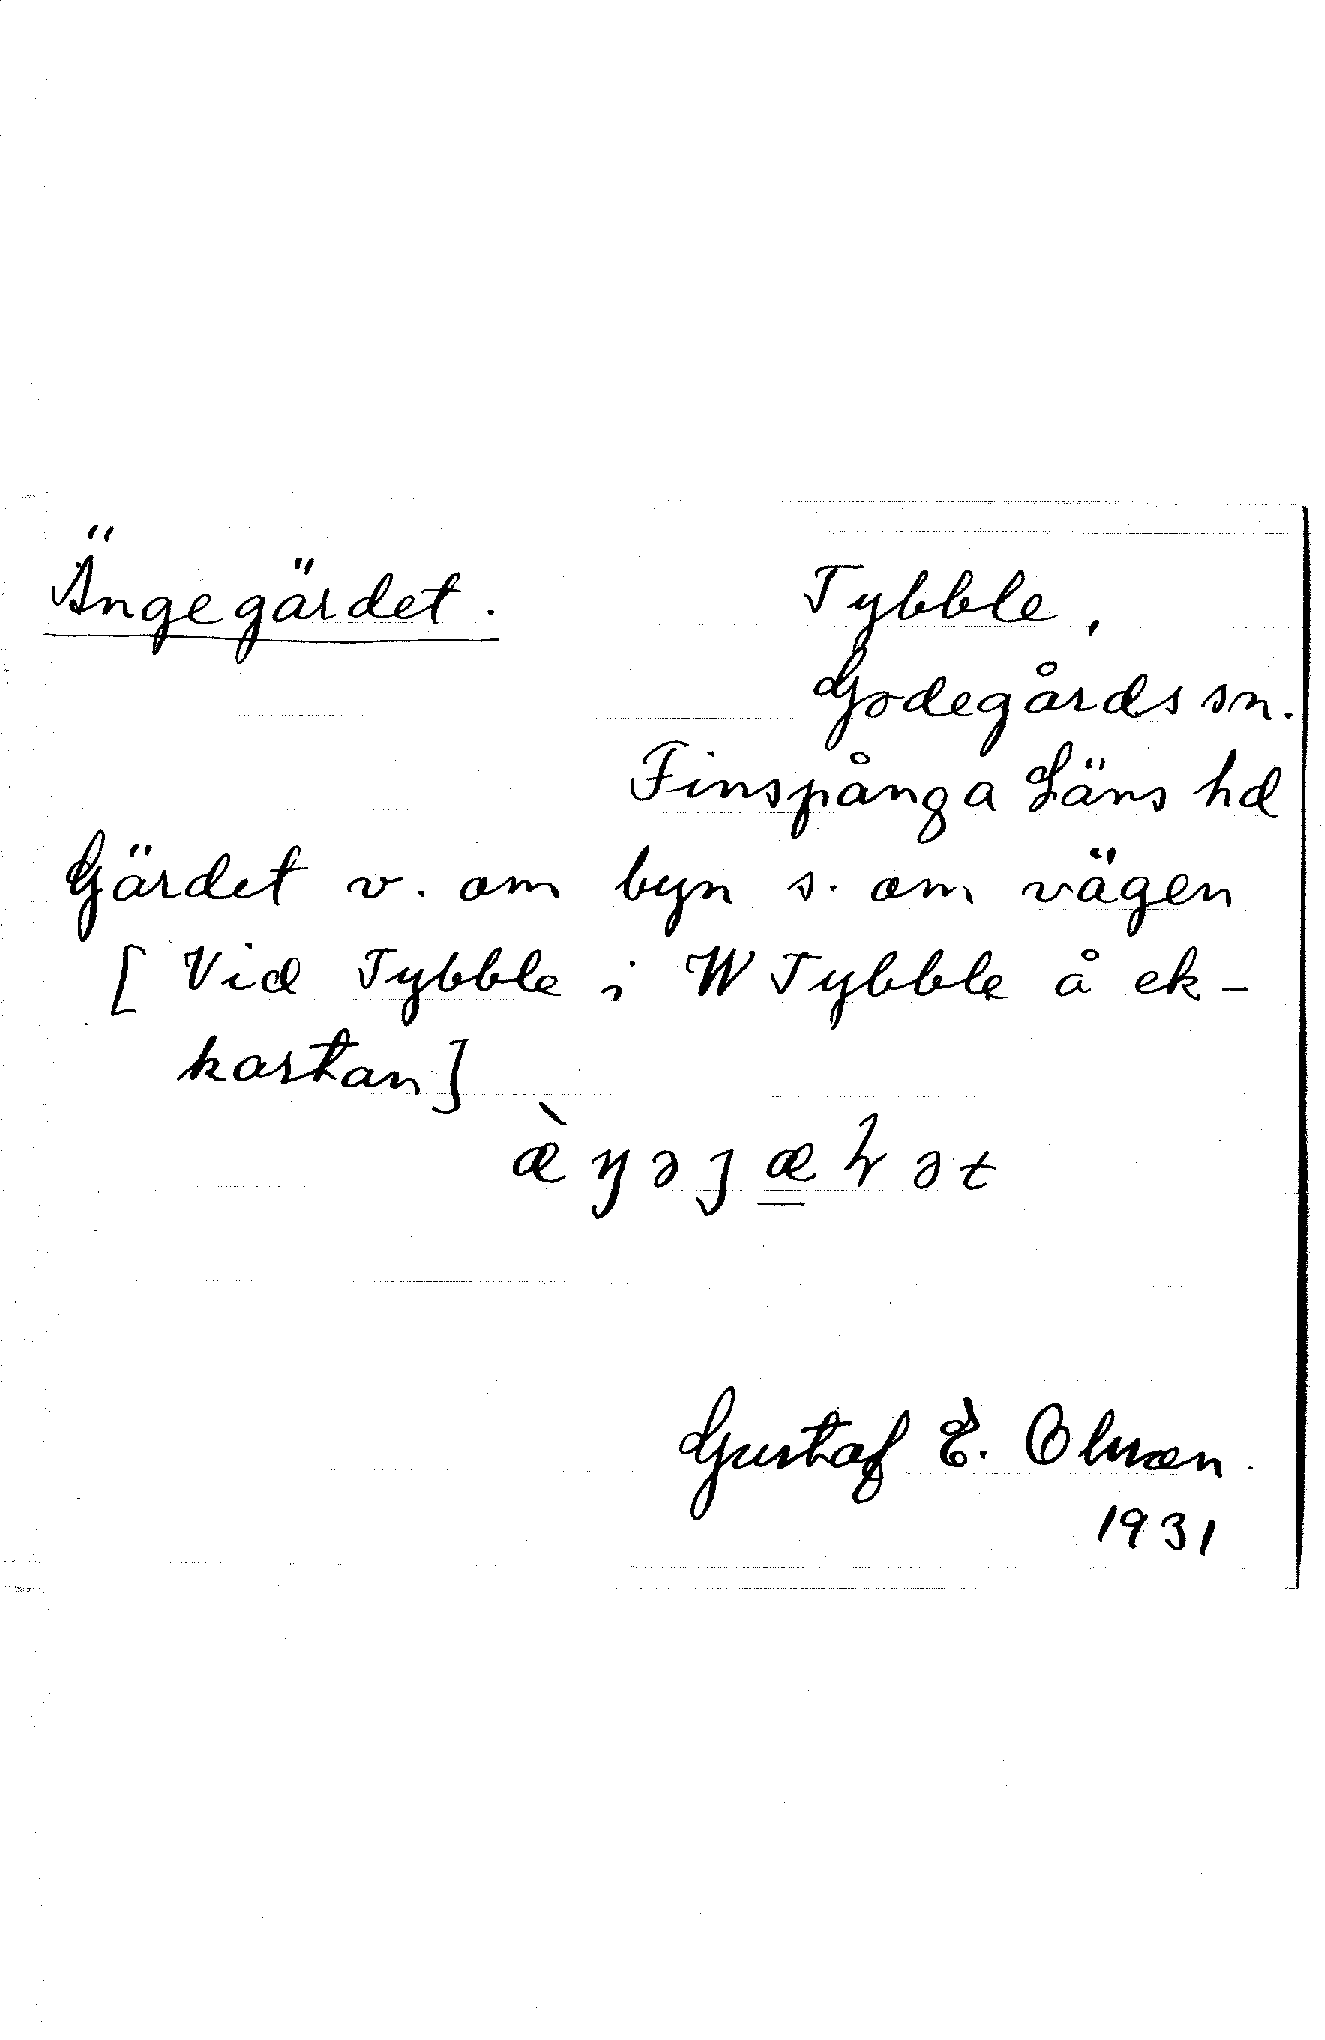 Ängegärdet.
Tybble,
Godegårds sn.
Finspånga Läns hd
Gärdet v. om byn s. om vägen
[ Vid Tybble i W Tybble å ek-
kartan]
Gustaf E. Olsson.
1931